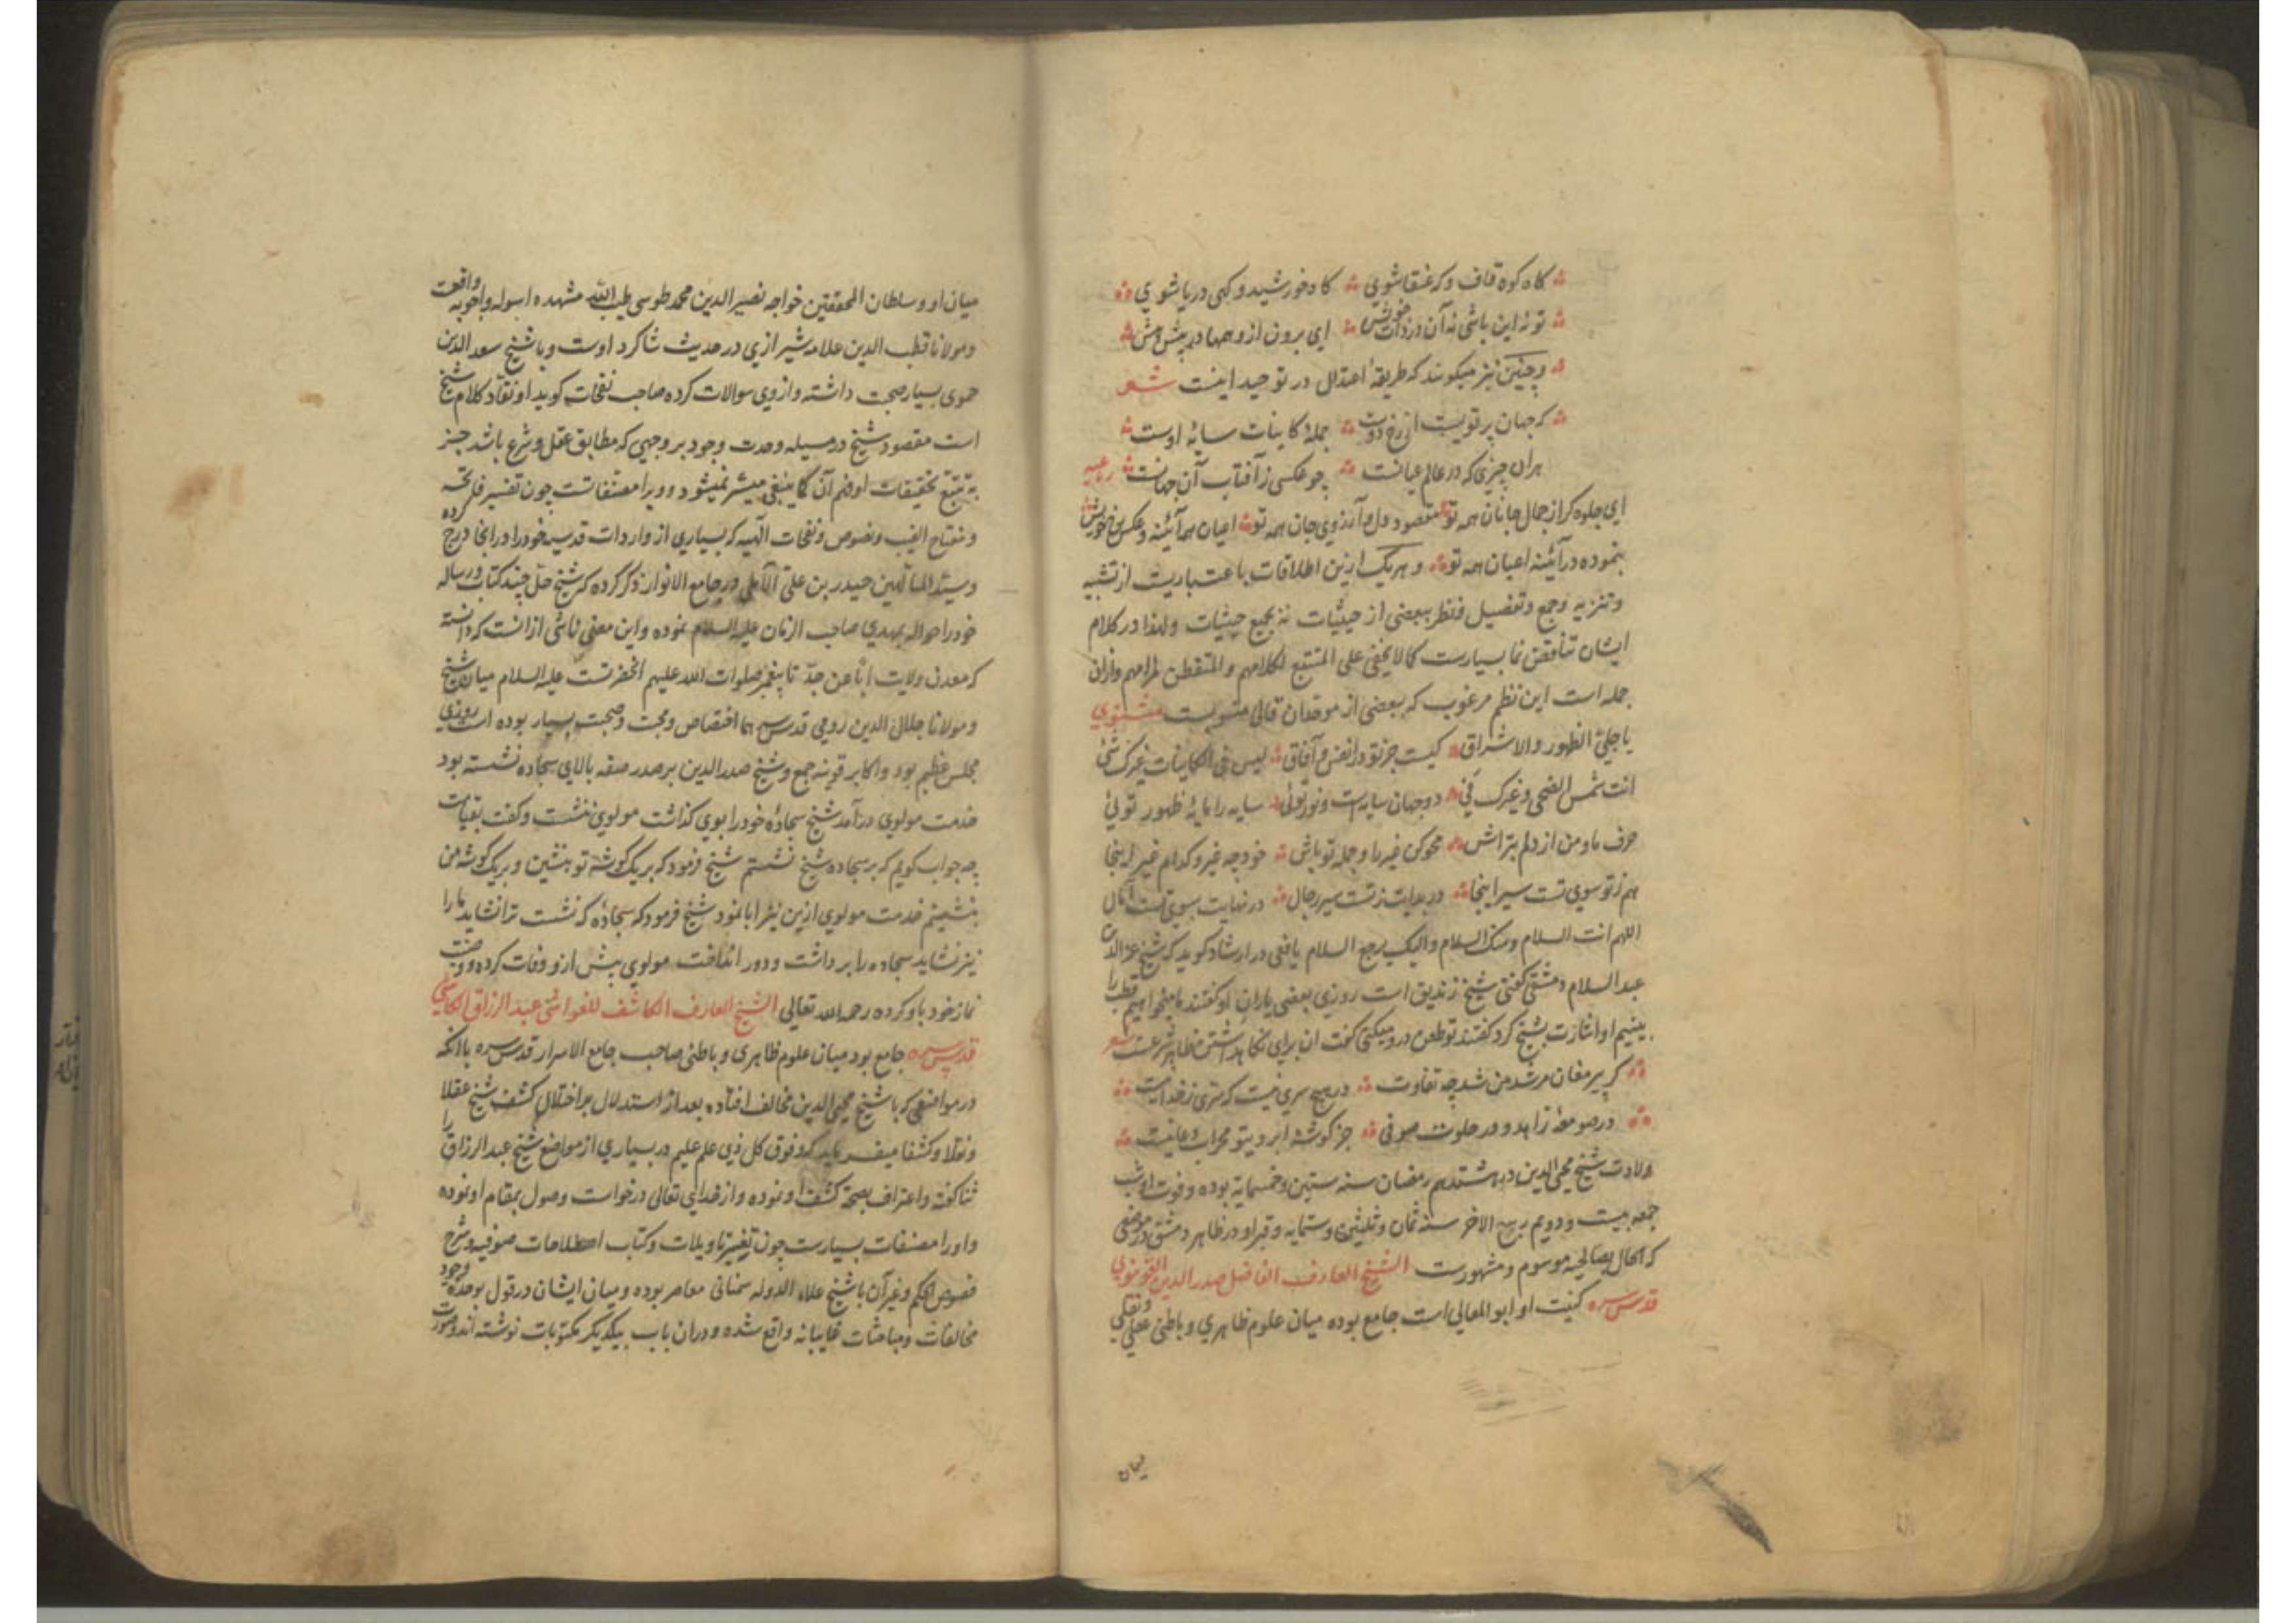 گاه کوه قاف و که عنقا شوی گاه خورشید و گهی دریا شوی
تو نه این باشی نه آن در ذات خویش ای برون از وهمها در پیش و بیش
و چنین نیز میگویند که طریقهٔ اعتدال در توحید اینست شعر
که جهان پرتویست از رخ دوست جملهٔ کاینات سایهٔ اوست
هران چیزی که در عالم عیانست چو عکسی ز آفتاب آن جهانست رباعیه
ای جلوه گر از جمال جانان همه تو مقصود دل و آرزوی جان همه تو اعیان همه آئینه و عکس رخ خویش
بنموده در آئینه اعیان همه تو و هر یک ازین اطلاقات باعتباریست از تشبیه
و تنزیه و جمع و تفصیل و نظر ببعضی از حیثیات نه بجمیع حیثیات و لهذا در کلام
ایشان تناقض نما بسیارست کما لا یخفی علی المتتبع لکلامهم و المتفطن لمرامهم و ازان
جمله است این نظم مرغوب که ببعضی از موحدان قالی منسوبست مثنوی
یا جلی الظهور و الاشراق کیست جز تو در انفس و آفاق لیس فی الکاینات غیرک شئ
انت شمس الضحی و غیرک فئ دو جهان سایه است و نور توئی سایه را مایهٔ ظهور توئی
حرف ما و من از دلم بتراش محو کن غیر را و جمله تو باش خود چه غیر و کدام غیر اینجا
هم ز تو سوی تست سیر اینجا در بدایت ز تست سیر رجال در نهایت بسوی تست آمال
اللهم انت السلام و منک السلام و الیک یرجع السلام یافعی در ارشاد گوید که شیخ عز الدین
عبد السلام دمشقی گفتی شیخ زندیق است روزی بعضی یاران او گفتند ما میخواهیم قطب را
ببینیم او اشارت بشیخ کرد گفتند تو طعن در و میکنی گفت ان برای نگاهداشتن ظاهر شرعست شعر
گر پیر مغان مرشد من شد چه تفاوت در هیچ سری نیست که سری ز خدا نیست
در صومعهٔ زاهد و در خلوت صوفی جز گوشهٔ ابروی تو محراب دعا نیست
ولادت شیخ محیی الدین در هشتدهم رمضان سنه ستین و خمسمایه بوده و فوت او شب
جمعه بیست و دویم ربیع الاخر سنه ثمان و ثلثین و ستمایه و قبر او در ظاهر دمشق در موضعی
که الحال بصالحیه موسوم و مشهورست الشیخ العارف الفاضل صدر الدین القونوی
قدس سره کنیت او ابو المعالی است جامع بوده میان علوم ظاهری و باطنی عقلی و نقلی
میان
میان او و سلطان المحققین خواجه نصیر الدین محمد طوسی طیب الله مشهده اسوله و اجوبه واقعت
و مولانا قطب الدین علامه شیرازی در حدیث شاگرد اوست و با شیخ سعد الدین
حموی بسیار صحبت داشته و از وی سوالات کرده صاحب نفحات گوید او نقاد کلام شیخ
است مقصود شیخ در مسیله وحدت وجود بر وجهی که مطابق عقل و شرع باشد جز
به تتبع تحقیقات او فهم آن کما ینبغی میسر نمیشود و ویرا مصنفاتست چون تفسیر فاتحه
و مفتاح الغیب و نصوص و نفحات الهیه که بسیاری از واردات قدسیه خود را در انجا درج کرده
و سید المتالهین حیدر بن علی الآملی در جامع الانوار ذکر کرده که شیخ حل چند کتاب و رساله
خود را حواله بمهدی صاحب الزمان علیه السلام نموده و این معنی ناشی از انست که دانسته
که معدن ولایت ابا عن جد تا پیغمبر صلوات الله علیهم انحضرتست علیه السلام میان شیخ
و مولانا جلال الدین رومی قدس سرهما اختصاص و محبت و صحبت بسیار بوده است روزی
مجلس عظیم بود و اکابر قونیه جمع و شیخ صدر الدین بر صدر صفه بالای سجاده نشسته بود
خدمت مولوی درآمد شیخ سجادهٔ خود را بوی گذاشت مولوی ننشست و گفت بقیامت
چه جواب گویم که بر سجاده شیخ نشستم شیخ فرمود که بر یک گوشه تو بنشین و بر یک گوشه من
بنشینم خدمت مولوی ازین نیز ابا نمود شیخ فرمود که سجادهٔ که نشست ترا نشاید ما را
نیز نشاید سجاده را برداشت و دور انداخت مولوی پیش از و وفات کرده و وصیت
نماز خود باو کرده رحمه الله تعالی الشیخ العارف الکاشف للغواشی عبد الرزاق الکاشی
قدس سره جامع بود میان علوم ظاهری و باطنی صاحب جامع الاسرار قدس سره باانکه
در مواضعی که با شیخ محیی الدین مخالف افتاده بعد از استدلال بر اختلال کشف شیخ عقلا
و نقلا و کشفا میفرماید که و فوق کل ذی علم علیم در بسیاری از مواضع شیخ عبد الرزاق را
ثنا گفته و اعتراف بصحة کشف او نموده و از خدای تعالی درخواست وصول بمقام او نموده
و او را مصنفات بسیارست چون تفسیر تاویلات و کتاب اصطلاحات صوفیه و شرح
فصوص الحکم و غیر آن با شیخ علاء الدوله سمنانی معاصر بوده و میان ایشان در قول بوحدة وجود
مخالفات و مباحثات غایبانه واقع شده و دران باب بیکدیگر مکتوبات نوشته اند و صورت